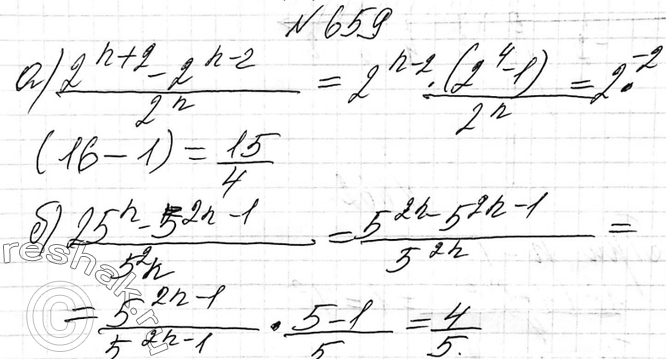 № 659
а) (2^(n+2) - 2^(n-2)) / 2^n = 2^(n-2) · (2^4 - 1) / 2^n = 2^(-2) ·
(16 - 1) = 15/4
б) (25^n - 5^(2n-1)) / 5^2n = (5^(2n) - 5^(2n-1)) / 5^(2n) =
= 5^(2n-1) / 5^(2n-1) · (5-1)/5 = 4/5.
reshak.ru